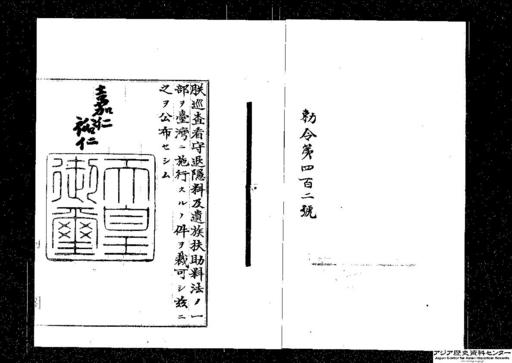 勅令第四百二號
朕巡査看守退隱料及遺族扶助料法ノ一
部ヲ臺灣ニ施行スルノ件ヲ裁可シ茲ニ
之ヲ公布セシム
嘉仁
裕仁
天皇
御璽
アジア歴史資料センター
Japan Center for Asian Historical Records